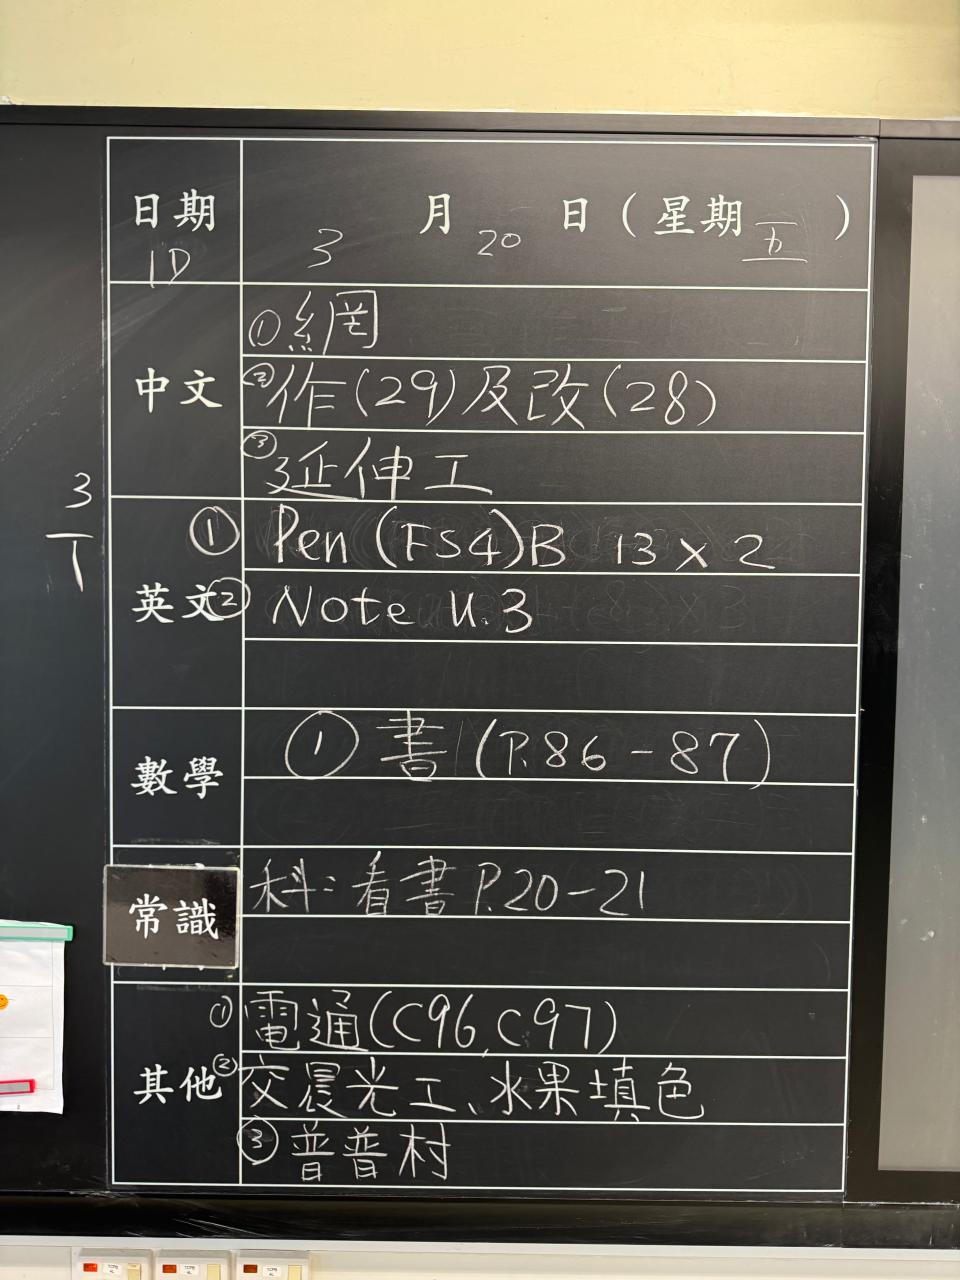 日期 3 月 20 日（星期五）
1D
中文
①網
②作(29)及改(28)
③延伸工
3
1
英文
① Pen (FS4)B 13 x 2
② Note U.3
數學
① 書 (P.86-87)
常識
科：看書 P.20-21
其他
① 電通(C96, C97)
② 交晨光工、水果填色
③ 普普村